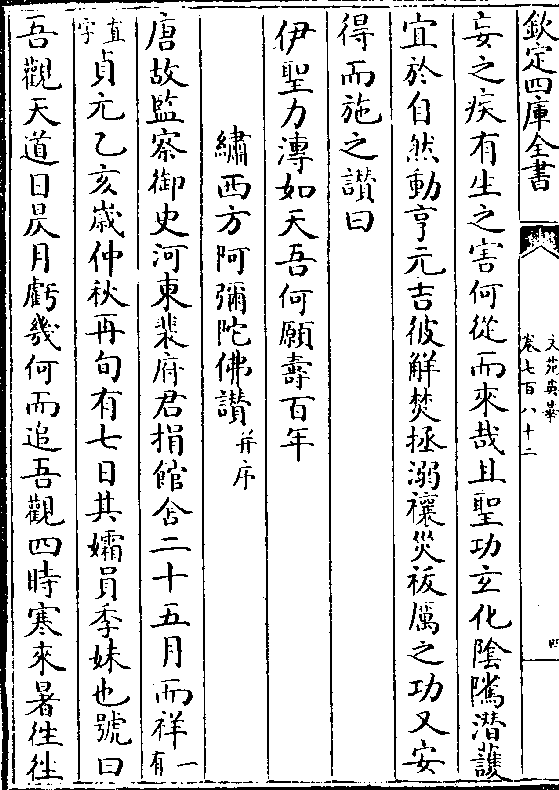 欽定四庫全書
文苑英華
卷七百八十二
四
妄之疾有生之害何從而來哉且聖功玄化陰隲潛護
宜於自然動亨元吉彼解焚拯溺禳災袚厲之功又安
得而施之讃曰
伊聖力漙如天吾何願壽百年
繡西方阿彌陀佛讃并序
唐故監察御史河東裴府君捐館舎二十五月而祥一有
直字貞元乙亥歳仲秋再旬有七日其孀員季妹也號曰
吾觀天道日昃月虧幾何而追吾觀四時寒來暑徃徃